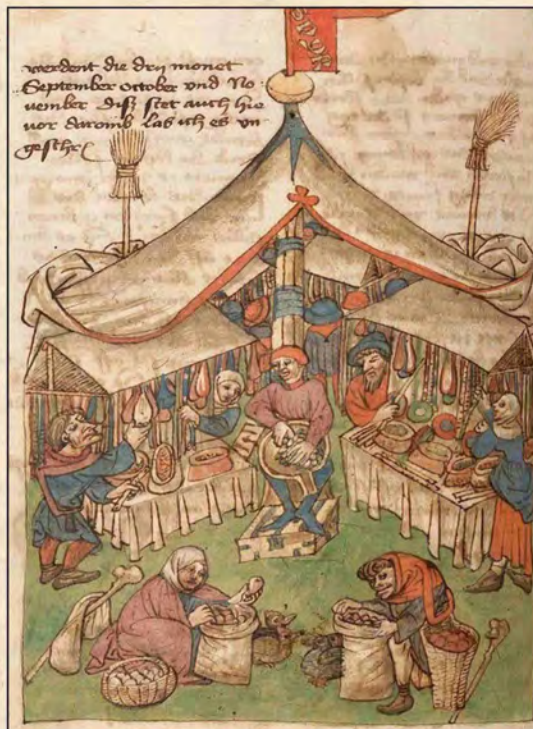 werdent die dry monet
September october vnd No
vember diß stet auch hie
vor daromb las ich es vn
geschr